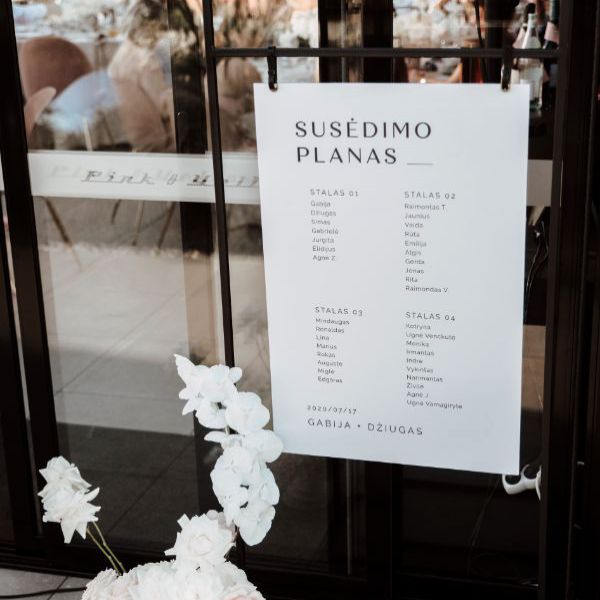 SUSĖDIMO
PLANAS
STALAS 01
Gabija
Džiugas
Simas
Gabrielė
Jurgita
Elidijus
Agnė Z.
STALAS 02
Raimontas T.
Jaunius
Vaida
Rūta
Emilija
Algis
Gerda
Jonas
Rita
Raimondas V.
STALAS 03
Mindaugas
Ronaldas
Lina
Marius
Rokas
Augustė
Miglė
Edgaras
STALAS 04
Kotryna
Ugnė Venckutė
Monika
Irmantas
Indrė
Vykintas
Narimantas
Živilė
Agnė J.
Ugnė Vamagirytė
2020/07/17
GABIJA + DŽIUGAS
Pink